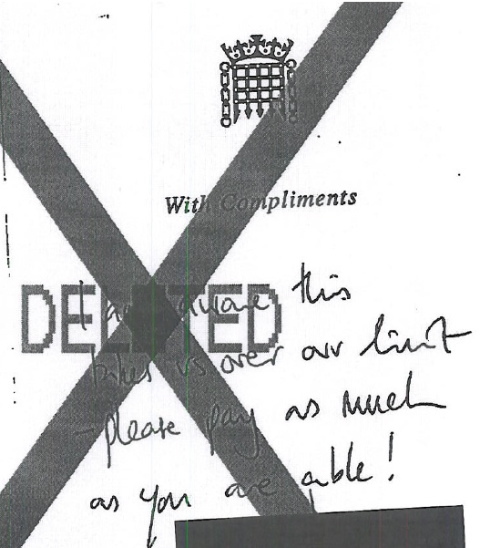 With Compliments
DELETED
I am aware this
takes us over our limit
- please pay as much
as you are able!